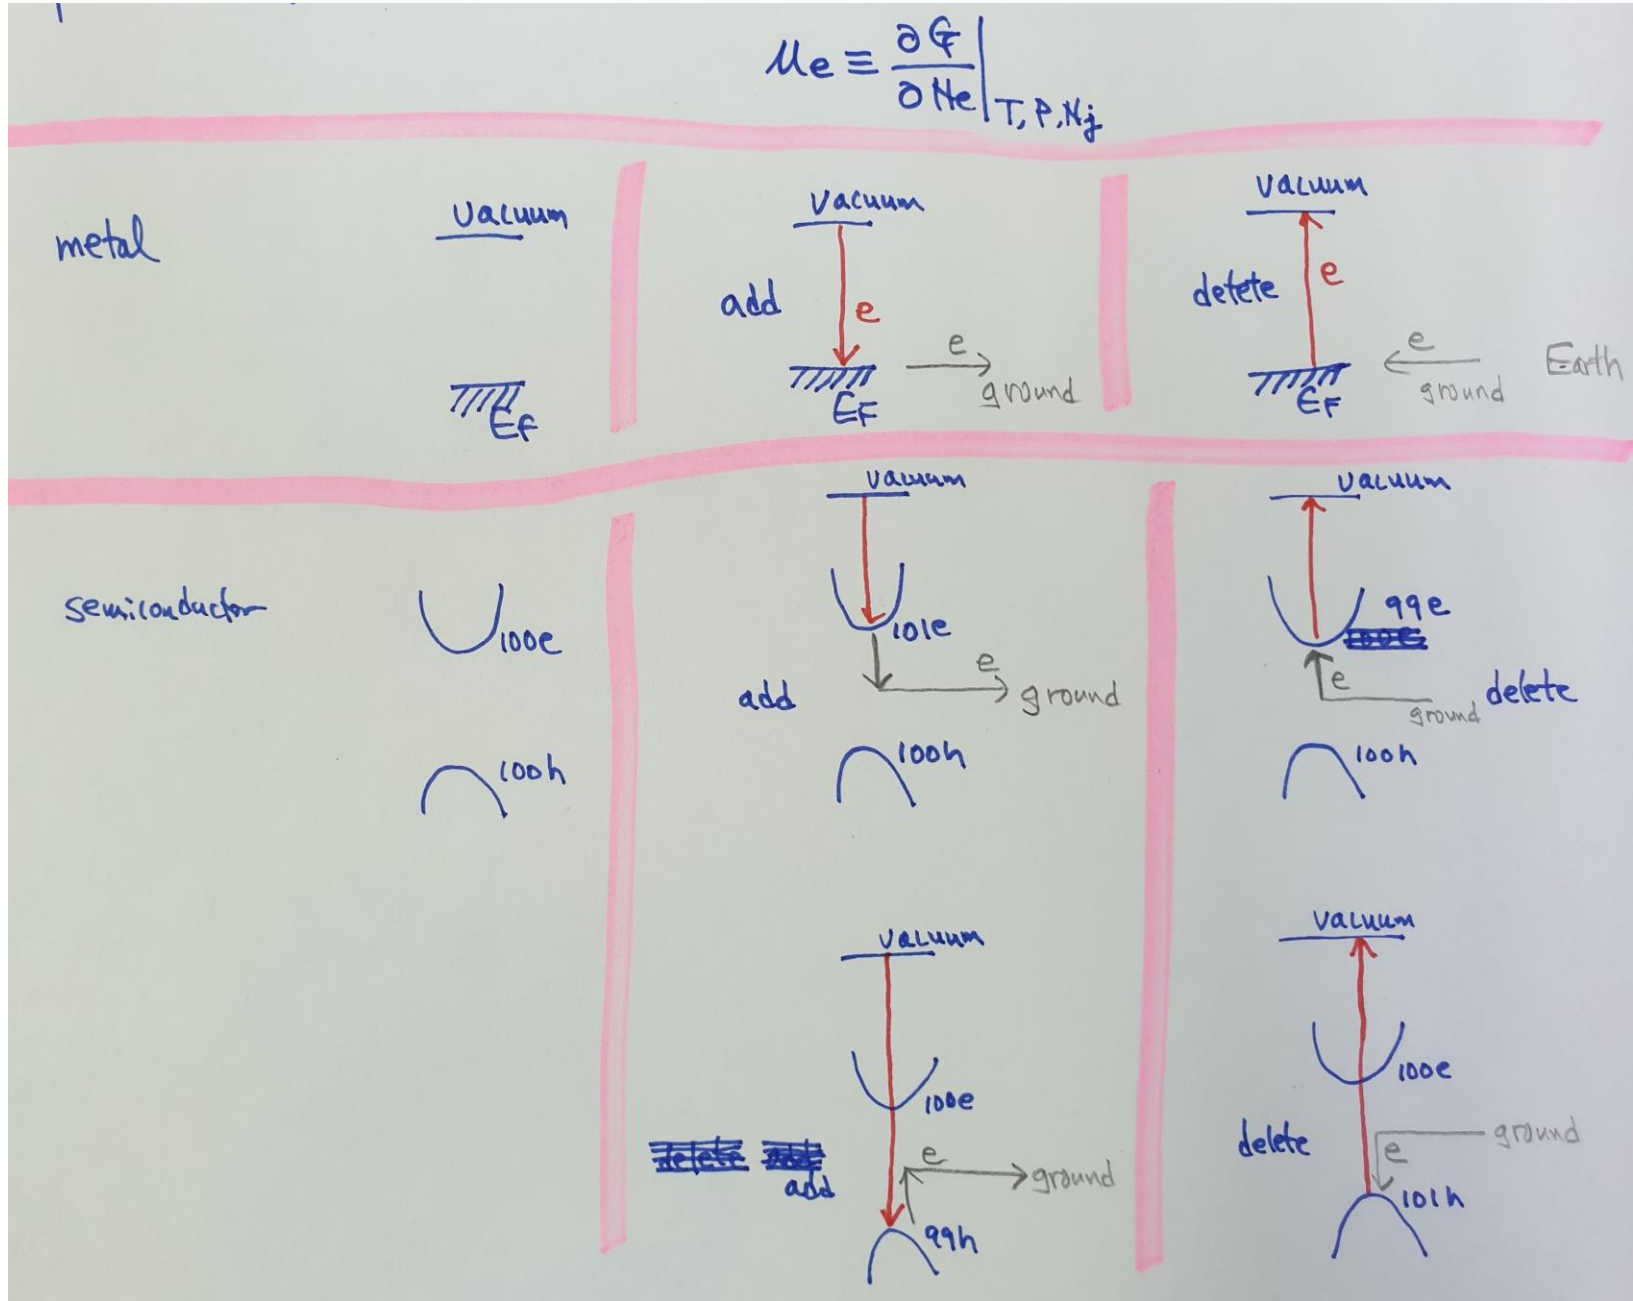 μe ≡ ∂G/∂Ne | T, P, Nj
metal
vacuum
EF
vacuum
add
e
e
ground
EF
vacuum
detete
e
e
ground
Earth
EF
semiconductor
100e
100h
vacuum
101e
e
add
ground
100h
vacuum
99e
100e
e
ground
delete
100h
vacuum
100e
delete add
add
e
ground
99h
vacuum
100e
delete
e
ground
101h